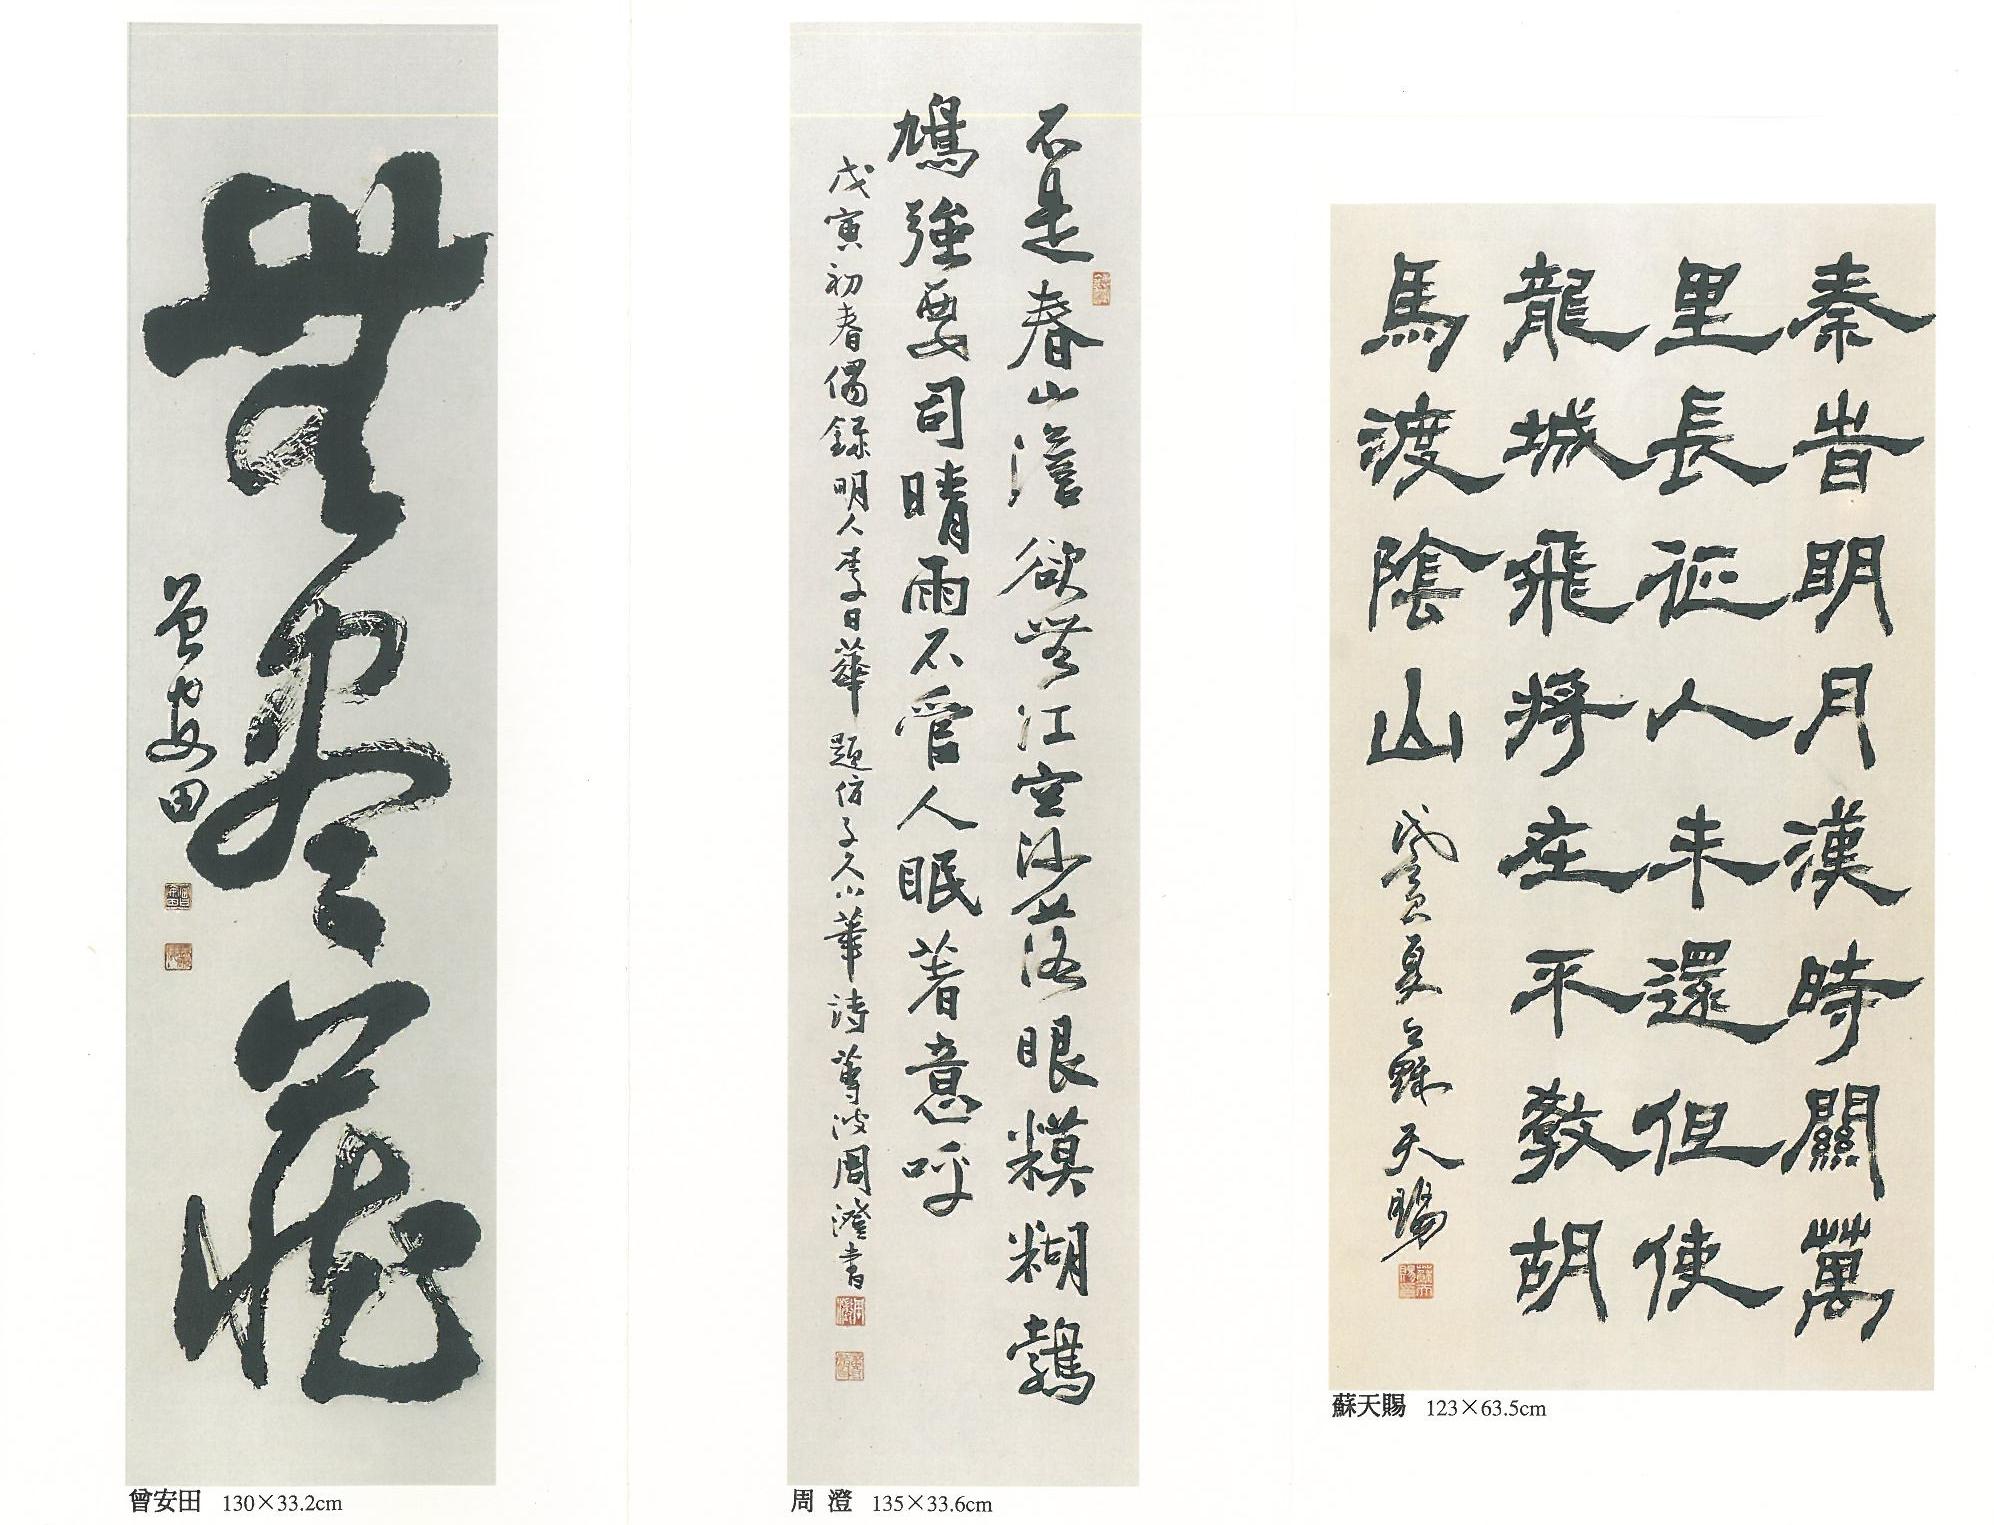 無盡藏
曾安田
曾安田 130×33.2cm
不是春山澹欲無江空沙落眼糢糊鵓
鳩強要司晴雨不管人眠著意呼
戊寅初春偶錄明人李日華題仿子久小華詩蓴波周澄書
周澄 135×33.6cm
秦旹明月漢時關萬
里長征人未還但使
龍城飛將在不教胡
馬渡陰山
戊寅夏蘇天賜
蘇天賜 123×63.5cm